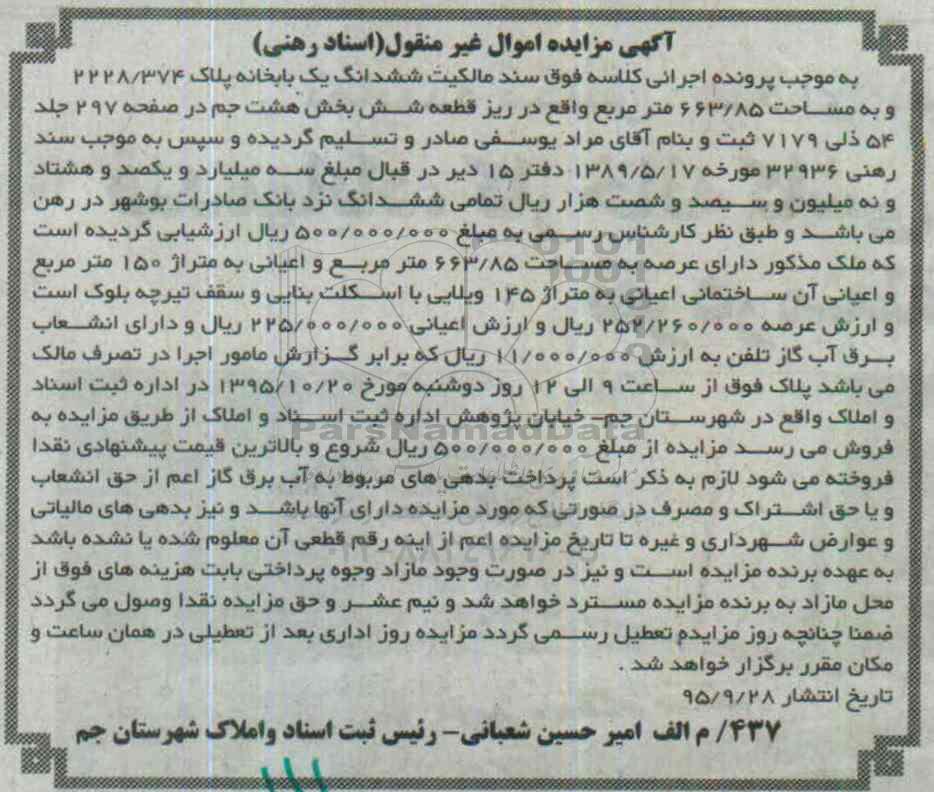 آگهی مزایده اموال غیر منقول(اسناد رهنی)
به موجب پرونده اجرائی کلاسه فوق سند مالکیت ششدانگ یک بابخانه پلاک ۲۲۲۸/۳۷۴
و به مساحت ۶۶۳/۸۵ متر مربع واقع در ریز قطعه شش بخش هشت جم در صفحه ۲۹۷ جلد
۵۴ ذلی ۷۱۷۹ ثبت و بنام آقای مراد یوسفی صادر و تسلیم گردیده و سپس به موجب سند
رهنی ۳۲۹۳۶ مورخه ۱۳۸۹/۵/۱۷ دفتر ۱۵ دیر در قبال مبلغ سه میلیارد و یکصد و هشتاد
و نه میلیون و سیصد و شصت هزار ریال تمامی ششدانگ نزد بانک صادرات بوشهر در رهن
می باشد و طبق نظر کارشناس رسمی به مبلغ ۵۰۰/۰۰۰/۰۰۰ ریال ارزشیابی گردیده است
که ملک مذکور دارای عرصه به مساحت ۶۶۳/۸۵ متر مربع و اعیانی به متراژ ۱۵۰ متر مربع
و اعیانی آن ساختمانی اعیانی به متراژ ۱۴۵ ویلایی با اسکلت بنایی و سقف تیرچه بلوک است
و ارزش عرصه ۲۵۲/۲۶۰/۰۰۰ ریال و ارزش اعیانی ۲۲۵/۰۰۰/۰۰۰ ریال و دارای انشعاب
برق آب گاز تلفن به ارزش ۱۱/۰۰۰/۰۰۰ ریال که برابر گزارش مامور اجرا در تصرف مالک
می باشد پلاک فوق از ساعت ۹ الی ۱۲ روز دوشنبه مورخ ۱۳۹۵/۱۰/۲۰ در اداره ثبت اسناد
و املاک واقع در شهرستان جم– خیابان پژوهش اداره ثبت اسناد و املاک از طریق مزایده به
فروش می رسد مزایده از مبلغ ۵۰۰/۰۰۰/۰۰۰ ریال شروع و بالاترین قیمت پیشنهادی نقدا
فروخته می شود لازم به ذکر است پرداخت بدهی های مربوط به آب برق گاز اعم از حق انشعاب
و یا حق اشتراک و مصرف در صورتی که مورد مزایده دارای آنها باشد و نیز بدهی های مالیاتی
و عوارض شهرداری و غیره تا تاریخ مزایده اعم از اینه رقم قطعی آن معلوم شده یا نشده باشد
به عهده برنده مزایده است و نیز در صورت وجود مازاد وجوه پرداختی بابت هزینه های فوق از
محل مازاد به برنده مزایده مسترد خواهد شد و نیم عشر و حق مزایده نقدا وصول می گردد
ضمنا چنانچه روز مزایدم تعطیل رسمی گردد مزایده روز اداری بعد از تعطیلی در همان ساعت و
مکان مقرر برگزار خواهد شد .
تاریخ انتشار ۹۵/۹/۲۸
۴۳۷/ م الف امیر حسین شعبانی– رئیس ثبت اسناد واملاک شهرستان جم
ParsNamadData